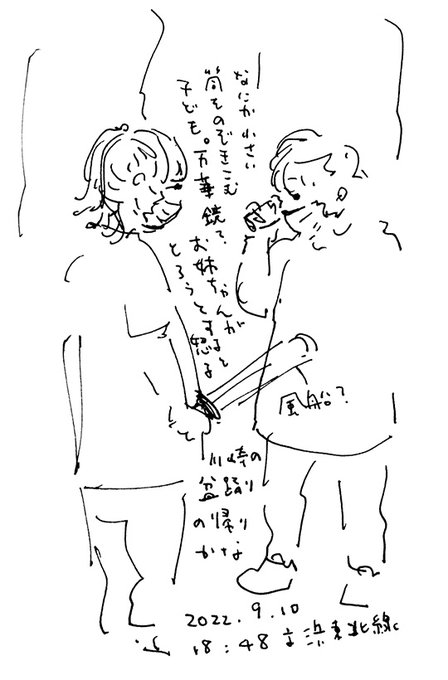 なにか小さい
筒をのぞきこむ
子ども。万華鏡?
お姉ちゃんが
とろうとすると
怒る
風船?
川崎の
盆踊り
の帰り
かな
2022.9.10
18:48 京浜東北線